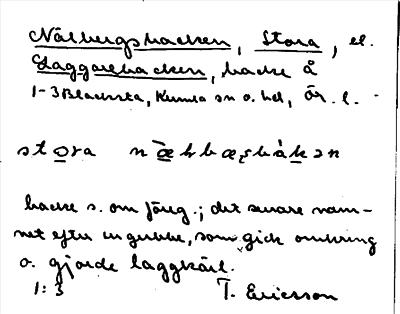 Nålbergsbacken, Stora, el.
Laggarebacken, backe å
1-3 Blacksta, Kumla sn o. hd, Ör. l.
stora
backe s. om föreg.; det senare nam-
net efter en gubbe, som gick omkring
o. gjorde laggkärl.
1:3 T. Ericsson